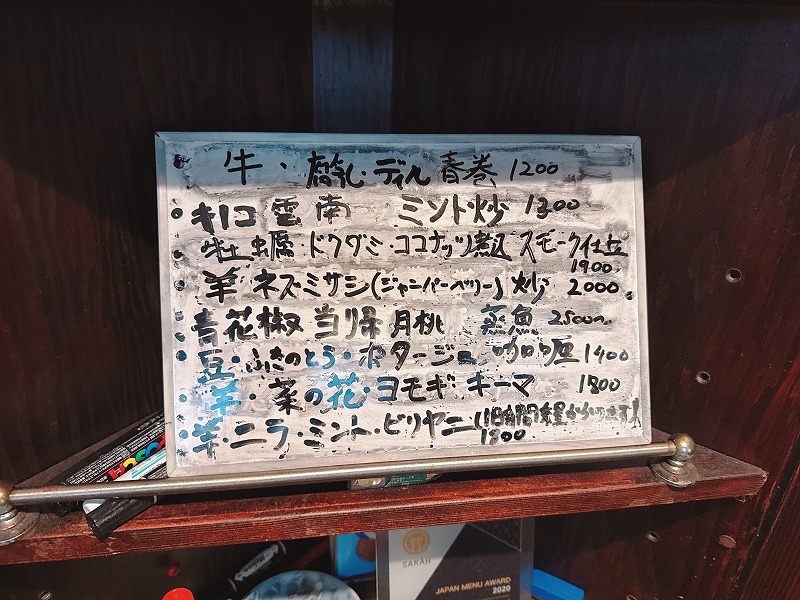 牛・腐乳・ディル 春巻 1200
キノコ 雲南 ミント炒 1300
牡蠣・ドクダミ・ココナッツ煮込 スモーク仕立
1900
羊・ネズミサシ(ジャニパーベリー)炒 2000
青花椒 当帰 月桃 蒸魚 2500
豆・ふきのとう・ポタージュ 咖喱 1400
羊・菜の花・ヨモギ キーマ 1800
羊・ニラ・ミント・ビリヤニ(1時間程かかります!)
1800
SARAH
JAPAN MENU AWARD
2020